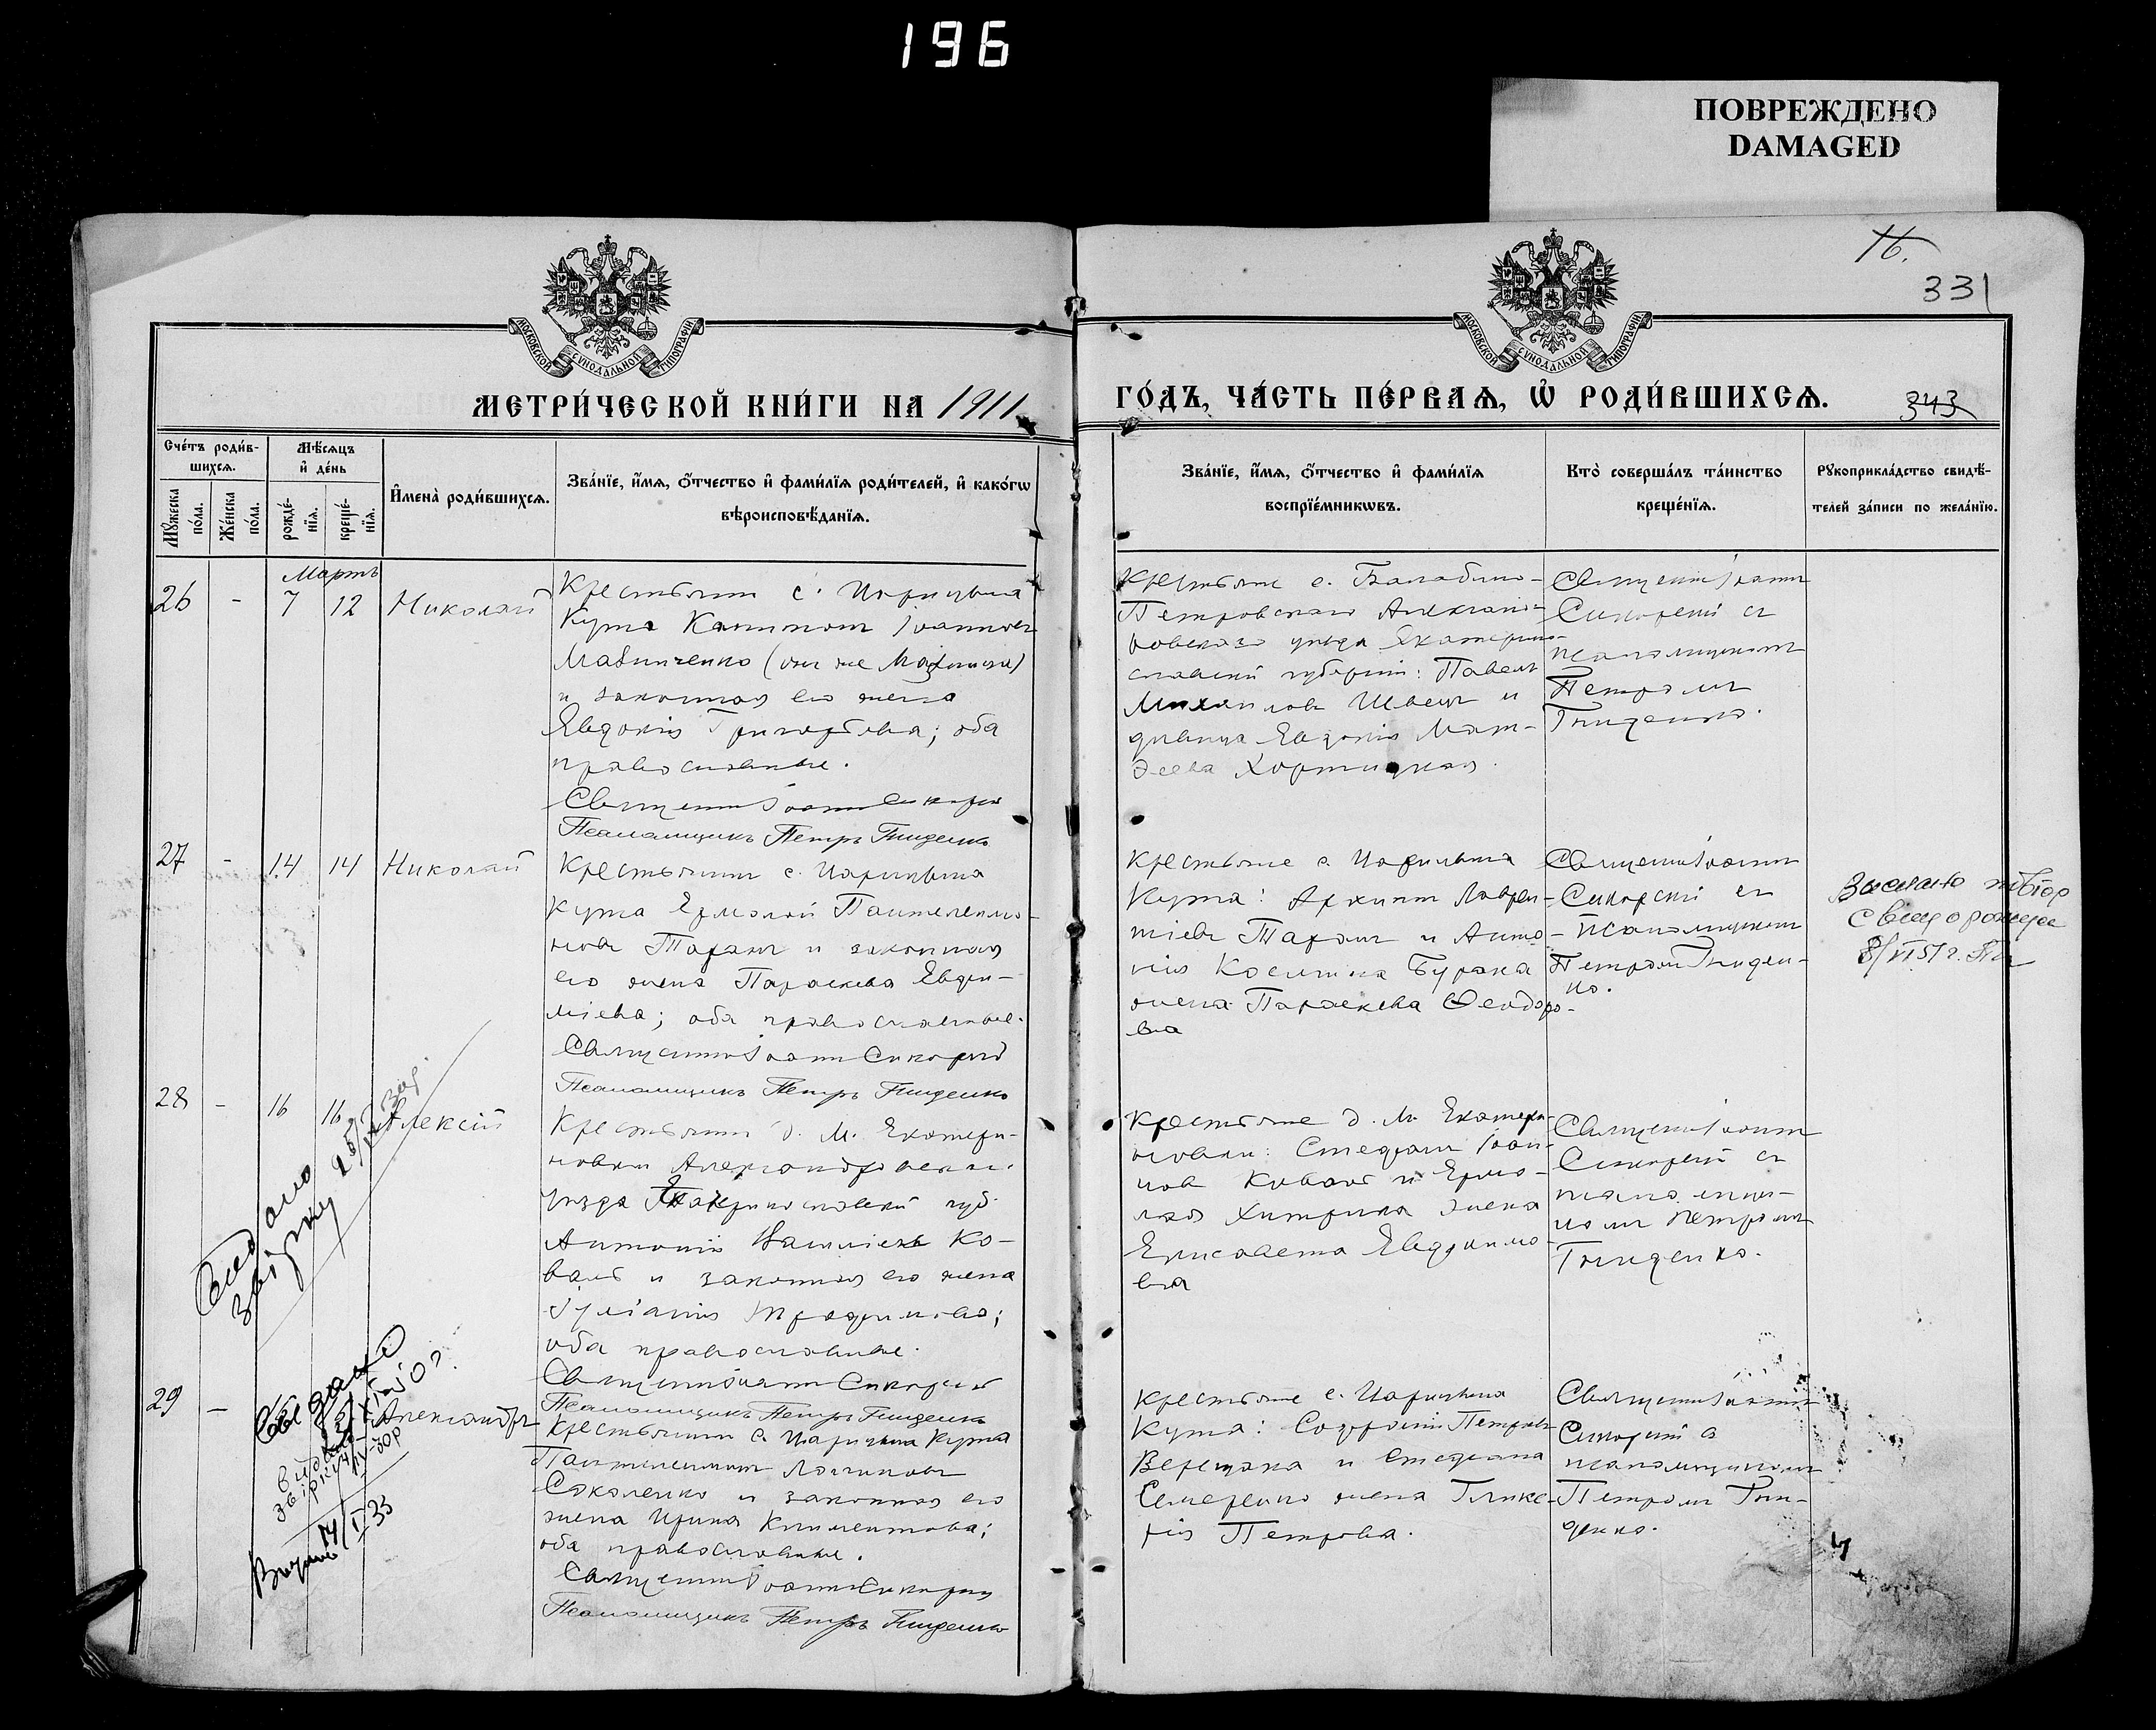 196
ПОВРЕЖДЕНО
DAMAGED
16.
331
МОСКОВСКОЙ СѴНОДАЛЬНОЙ ТИПОГРАФІИ
МОСКОВСКОЙ СѴНОДАЛЬНОЙ ТИПОГРАФІИ
МЕТРИ́ЧЕСКОЙ КНИ́ГИ НА 1911
ГО́ДЪ, ЧА́СТЬ ПЕ́РВАѦ, Ѡ҆ РОДИ́ВШИХСѦ.
343
Сче́тъ роди́в-
шихсѧ.
Мѣ́сѧцъ
и҆ де́нь
Мꙋ́жеска
по́ла.
Же́нска
по́ла.
рожде́-
нїѧ.
креще́-
нїѧ.
И҆мена̀ роди́вшихсѧ.
Зва́нїе, и҆́мѧ, ѻ҆́тчество и҆ фами́лїѧ роди́телей, и҆ како́гѡ
вѣроисповѣ́данїѧ.
Зва́нїе, и҆́мѧ, ѻ҆́тчество и҆ фами́лїѧ
воспрїе́мникѡвъ.
Кто̀ соверша́лъ та́инство
креще́нїѧ.
Рꙋкоприкла́дство свидѣ́-
телей за́писи по жела́нїю.
Мартъ
26 - 7 12 Николай
Крестьянин с. Царицына
Кута Капитон Іоаннов
и законная его жена
Евдокія Григорьева; оба
православные.
Священник Іоанн Сикорский
Псаломщикъ Петръ Гниденко
Крестьяне с. Балабино-
Петровскаго Александ-
ровскаго уезда Екатерино-
славской губернии: Павел
Михаилов Швец и
девица Евдокія Мат-
феева Хортицкая
Священник Іоанн
Сикорский с
псаломщиком
Петром
Гниденко.
27 - 14 14 Николай
Крестьянин с. Царицына
Кута Ермолай Пантелеимо-
нов Таран и законная
его жена Параскева Евфи-
міева; оба православные.
Священник Іоанн Сикорский
Псаломщикъ Петръ Гниденко
Крестьяне с. Царицына
Кута: Архипп Лаврен-
тіев Таран и Анто-
нія Косьмина Буряка
жена Параскева Феодоро-
вна
Священник Іоанн
Сикорский с
псаломщиком
Петром Гниден-
ко.
28 - 16 16 Алексій
Крестьянин д. М. Екатери-
новки Александровскаго
уезда Екатеринославской губ.
Антоній Василіев Ко-
валь и законная его жена
Іуліанія Трофимова;
оба православные.
Священник Іоанн Сикорский
Псаломщикъ Петръ Гниденко
Крестьяне д. М. Екатери-
новки: Стефан Іоан-
нов Коваль и Ермо-
лая Хитрика жена
Елисавета Евдокимо-
вна
Священник Іоанн
Сикорский с
псаломщи-
ком Петром
Гниденко.
29 - Александръ
Крестьянин с. Царицына Кута
Пантелеимон Логинов
Соколенко и законная его
жена Ирина Климентова;
оба православные.
Священник Іоанн Сикорский
Псаломщикъ Петръ Гниденко
Крестьяне с. Царицына
Кута: Софроній Петров
Верещака и Стефана
Семеренко жена Глике-
рія Петрова.
Священник Іоанн
Сикорский с
псаломщиком
Петром Гни-
денко.